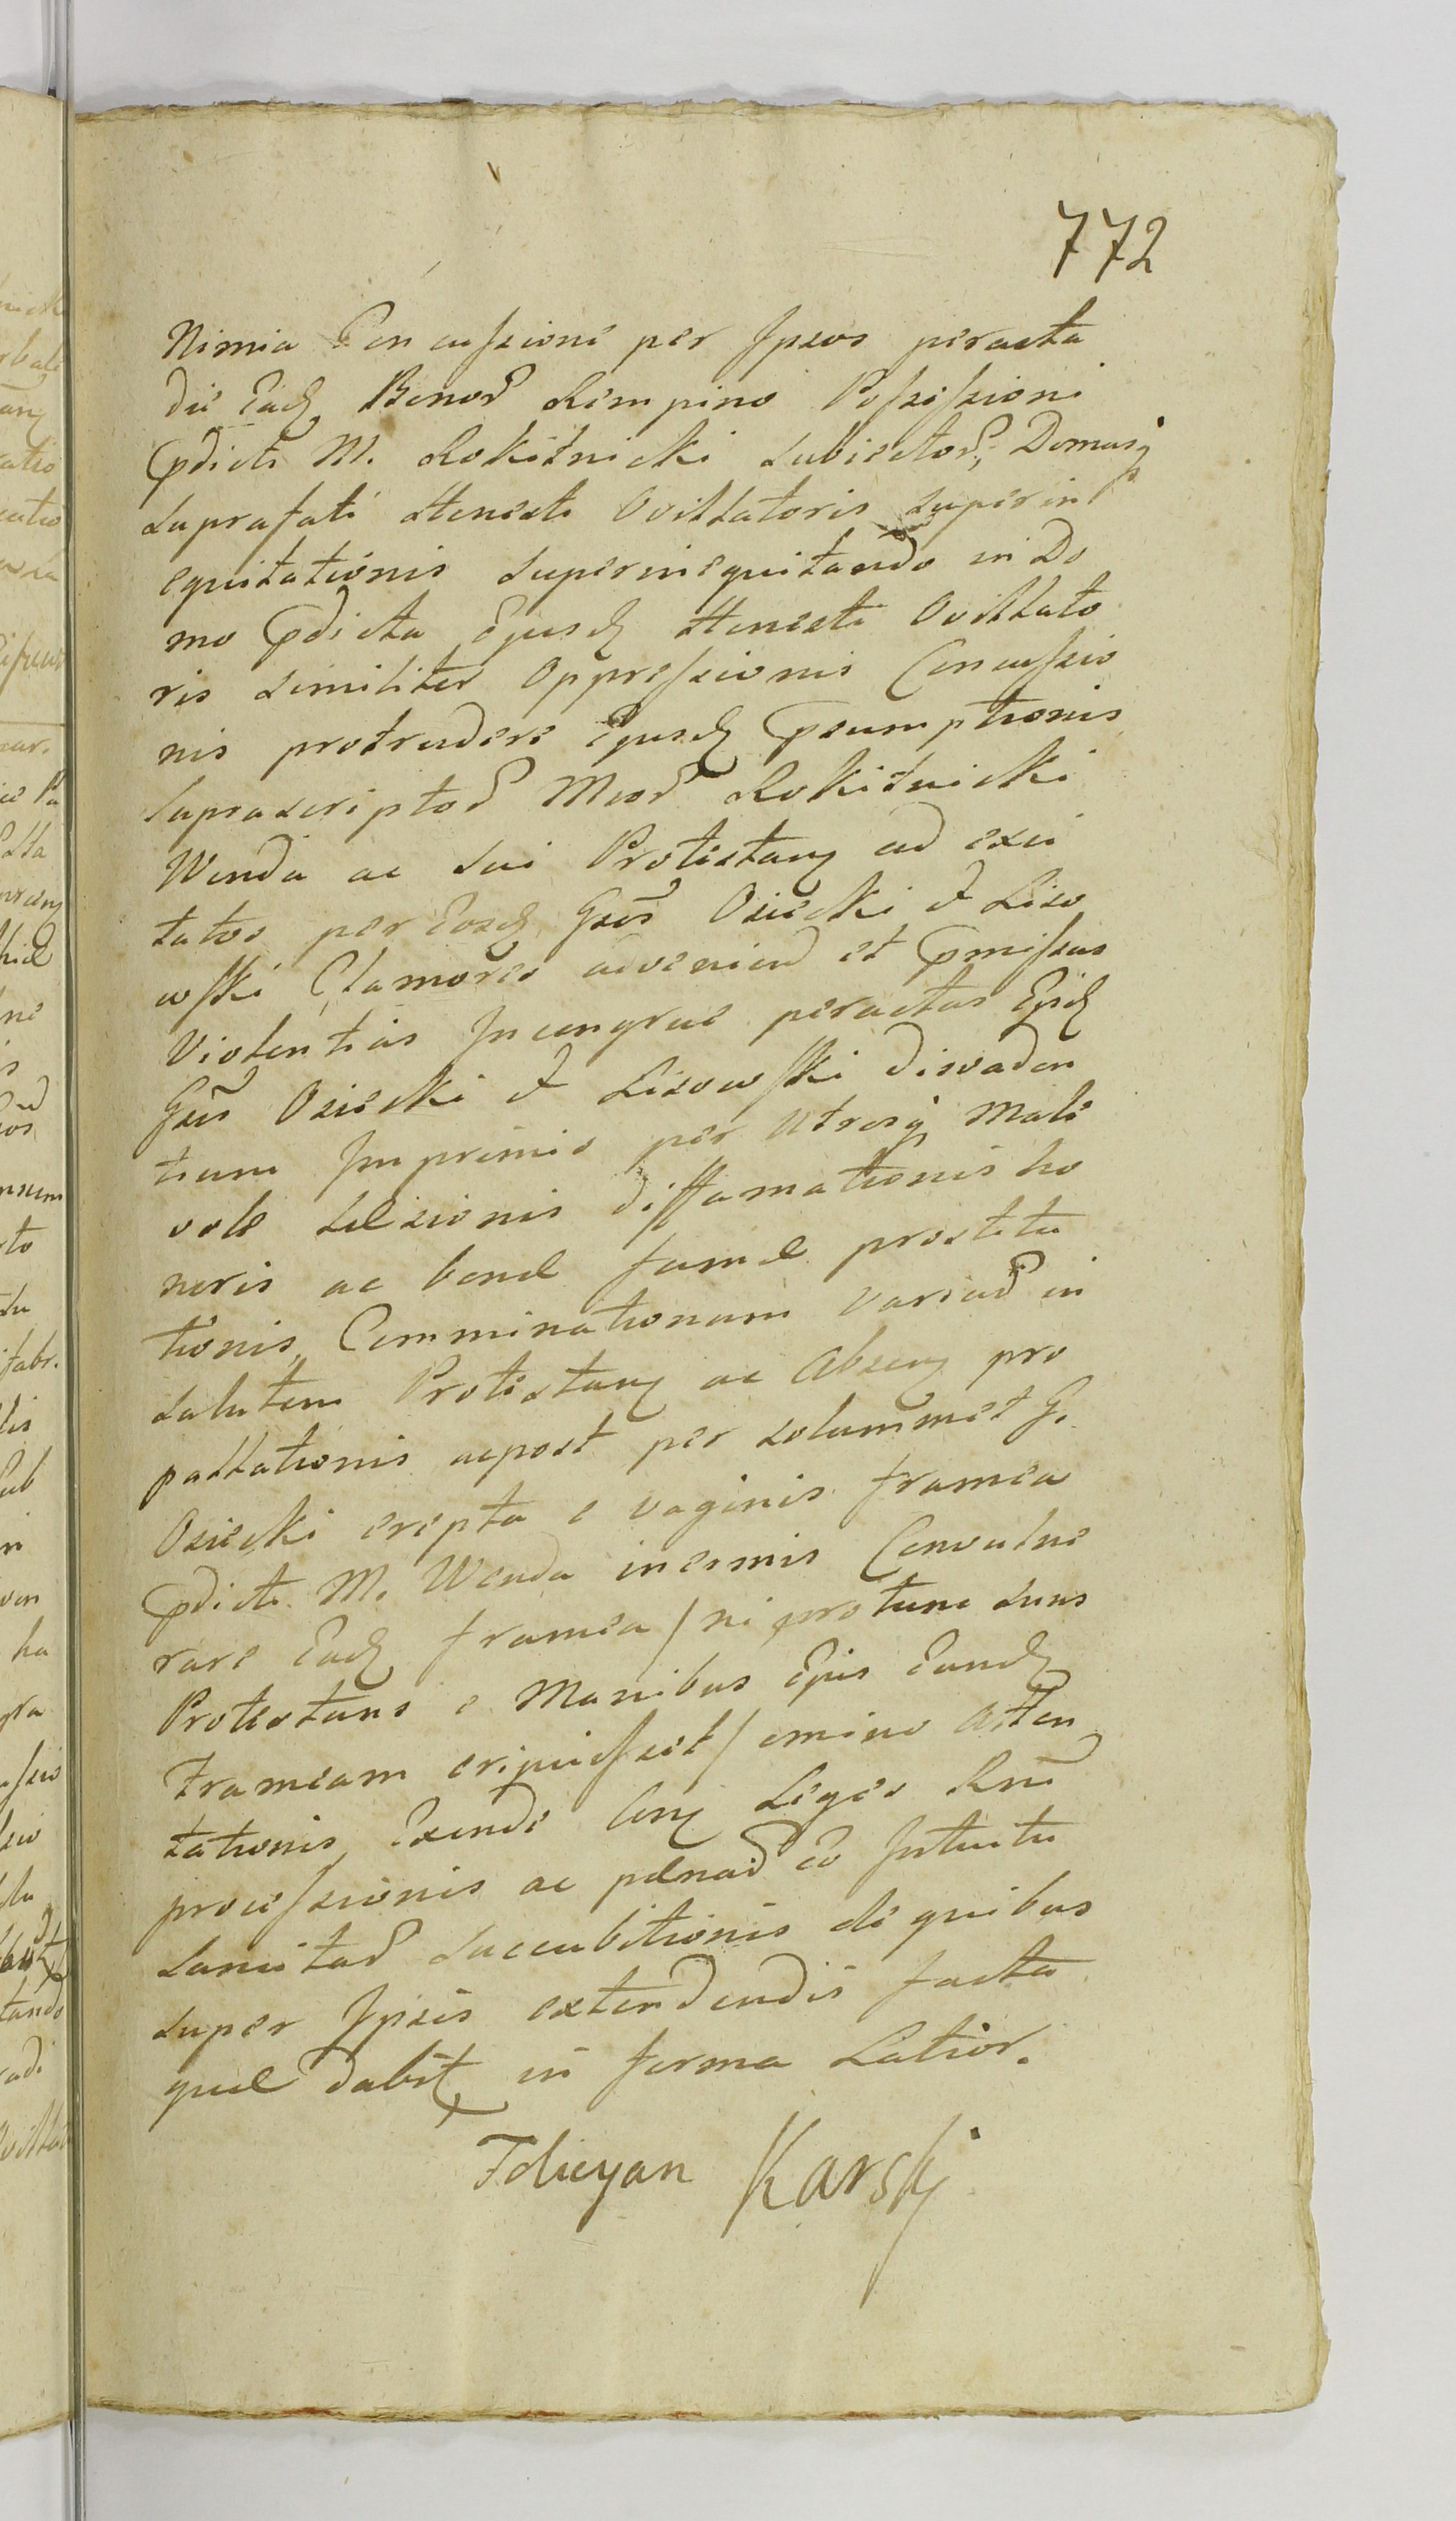 772
Nimia Concussione per Ipsos peracta
die Eadq Bonor Rempino Possessioni
pdicti M. Rokitnicki Subiector, Domusq
Suprafati Honesti Ovillatoris superin
equitationis superinequitando in Do
mo pdicta Ejusdq Honesti Ovillato
ris similiter Oppressionis Concussio
nis protrudere Ejusdq psumptionis
Suprascriptor Mcor Rokitnicki
Wenda ac sui Protestanq ad exci
tatos per Eosdq Gsos Osiecki & Liso
wski Clamores advenien et pmissas
Violentias Incongrue peractas Ejsdq
Gsis Osiecki & Lisowski disvaden
tium Imprimis per Utrosq Male
vole Lesionis diffamationis ho
noris ac bone fame prostitu
tionis, Comminationum variar in
salutem Protestanq ac Absenq pro
pallationis ac post per solummet G.
Osiecki erepta e vaginis framea
pdicti M. Wenda inermis Convulne
rare Eadq framea / ni protunc suus
Protestans e Manibus Ejus Eandq
Frameam eripuisset / omino Atten
tationis Exinde Conq Leges Rni
processionis ac penar Eo Intuitu
Sancitar succubitionis de quibus
super Ipsis extendendis facta
que dabit in forma Latior.
Felicyan Karski